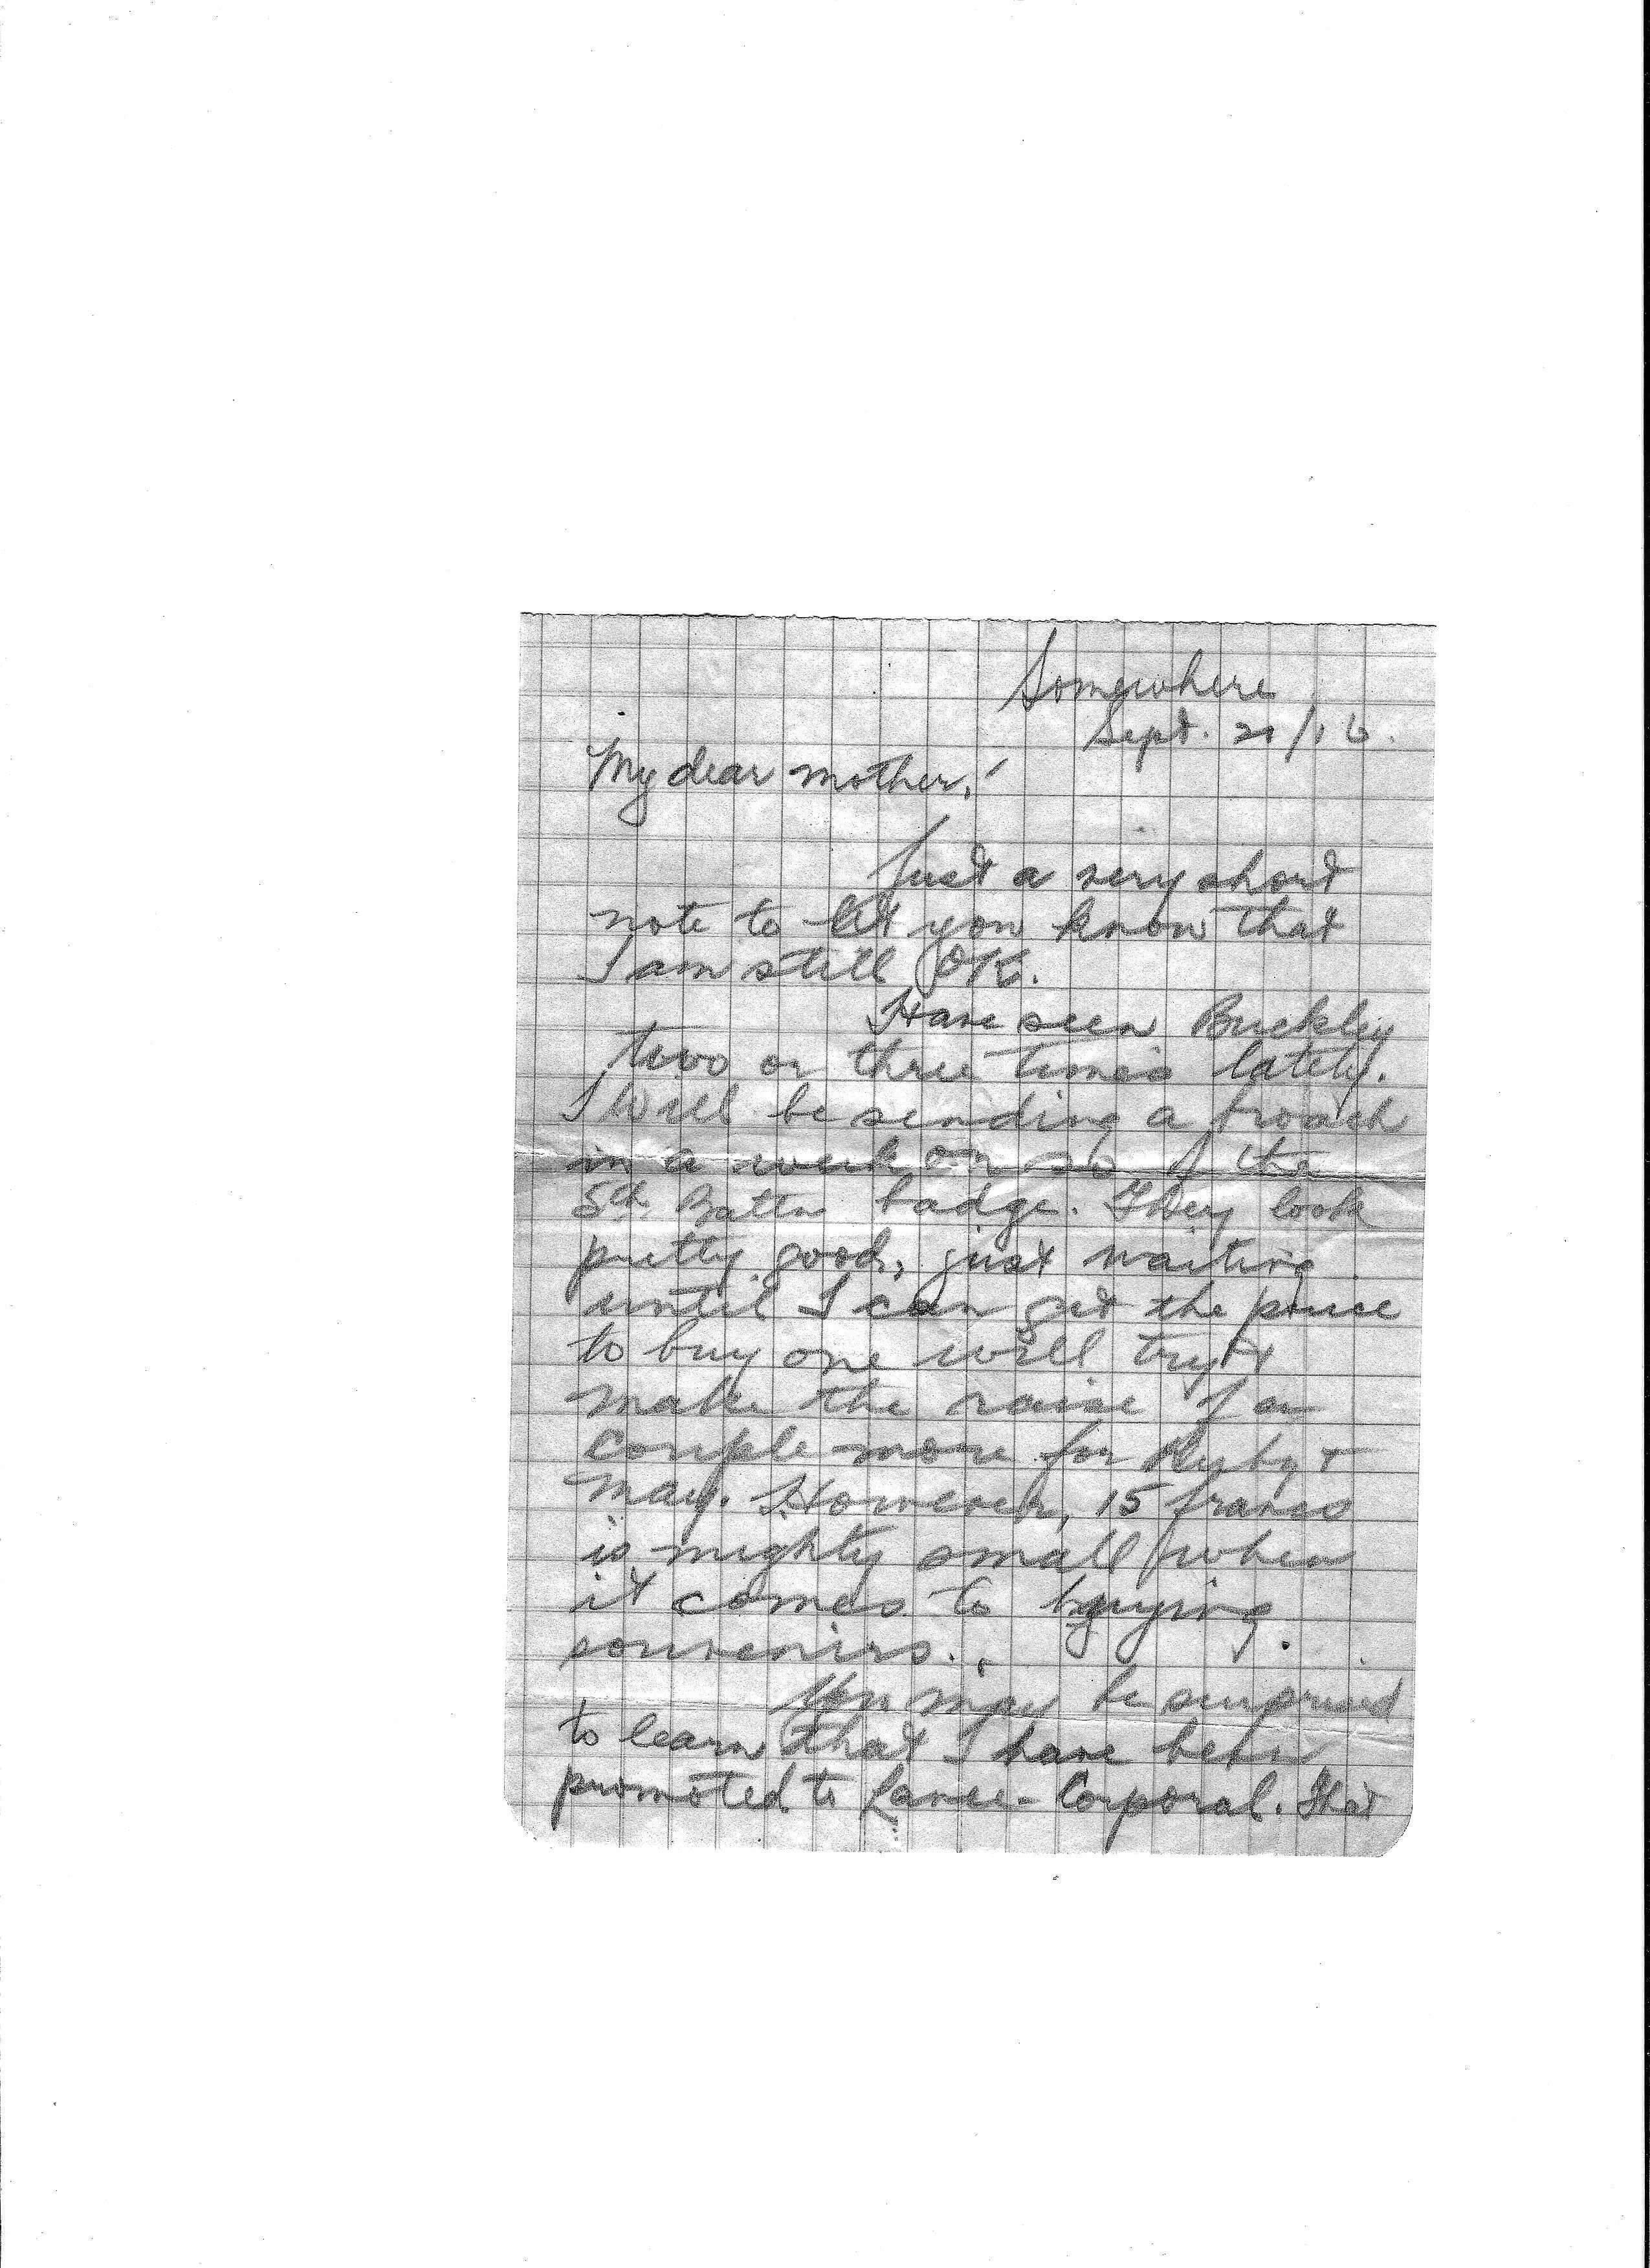 Somewhere
Sept. 21/16.
My dear mother,
Just a very short
note to let you know that
I am still OK.
Have seen Buckley
two or three times lately.
I will be sending a broach
in a week or so of the
5th Battn badge. They look
pretty good, just waiting
until I can get the price
to buy one will try &
make the raise for
couple more for Ruby +
May. However, 15 francs
is mighty small when
it comes to buying
souvenirs.
You may be surprised
to learn that I have been
promoted to Lance-Corporal. That